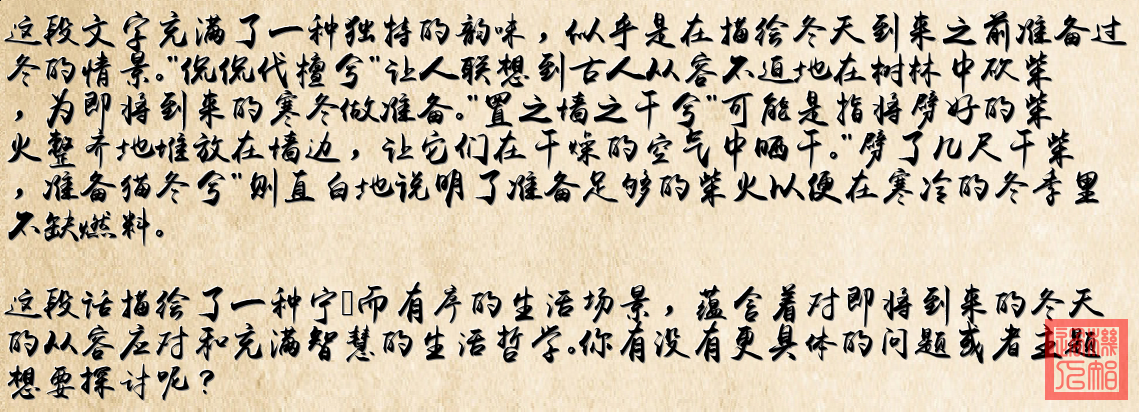 这段文字充满了一种独特的韵味，似乎是在描绘冬天到来之前准备过
冬的情景。"侃侃代檀兮"让人联想到古人从容不迫地在树林中砍柴
，为即将到来的寒冬做准备。"置之墙之干兮"可能是指将劈好的柴
火整齐地堆放在墙边，让它们在干燥的空气中晒干。"劈了几尺干柴
，准备猫冬兮"则直白地说明了准备足够的柴火以便在寒冷的冬季里
不缺燃料。
这段话描绘了一种宁而有序的生活场景，蕴含着对即将到来的冬天
的从容应对和充满智慧的生活哲学。你有没有更具体的问题或者主题
想要探讨呢？